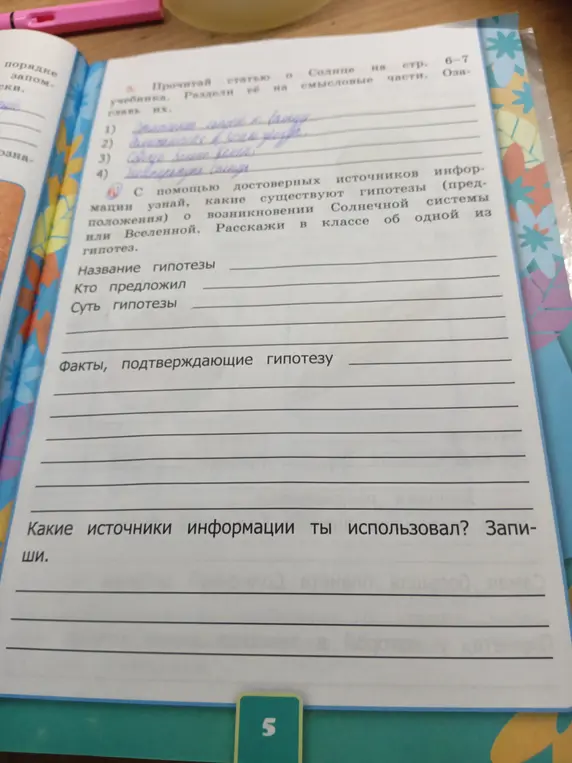 порядке
запом.
ски.
5. Прочитай статью о Солнце на стр. 6–7
учебника. Раздели её на смысловые части. Оза-
главь их.
1)
2)
3)
4)
6. С помощью достоверных источников инфор-
мации узнай, какие существуют гипотезы (пред-
положения) о возникновении Солнечной системы
или Вселенной. Расскажи в классе об одной из
гипотез.
Название гипотезы
Кто предложил
Суть гипотезы
Факты, подтверждающие гипотезу
Какие источники информации ты использовал? Запи-
ши.
5